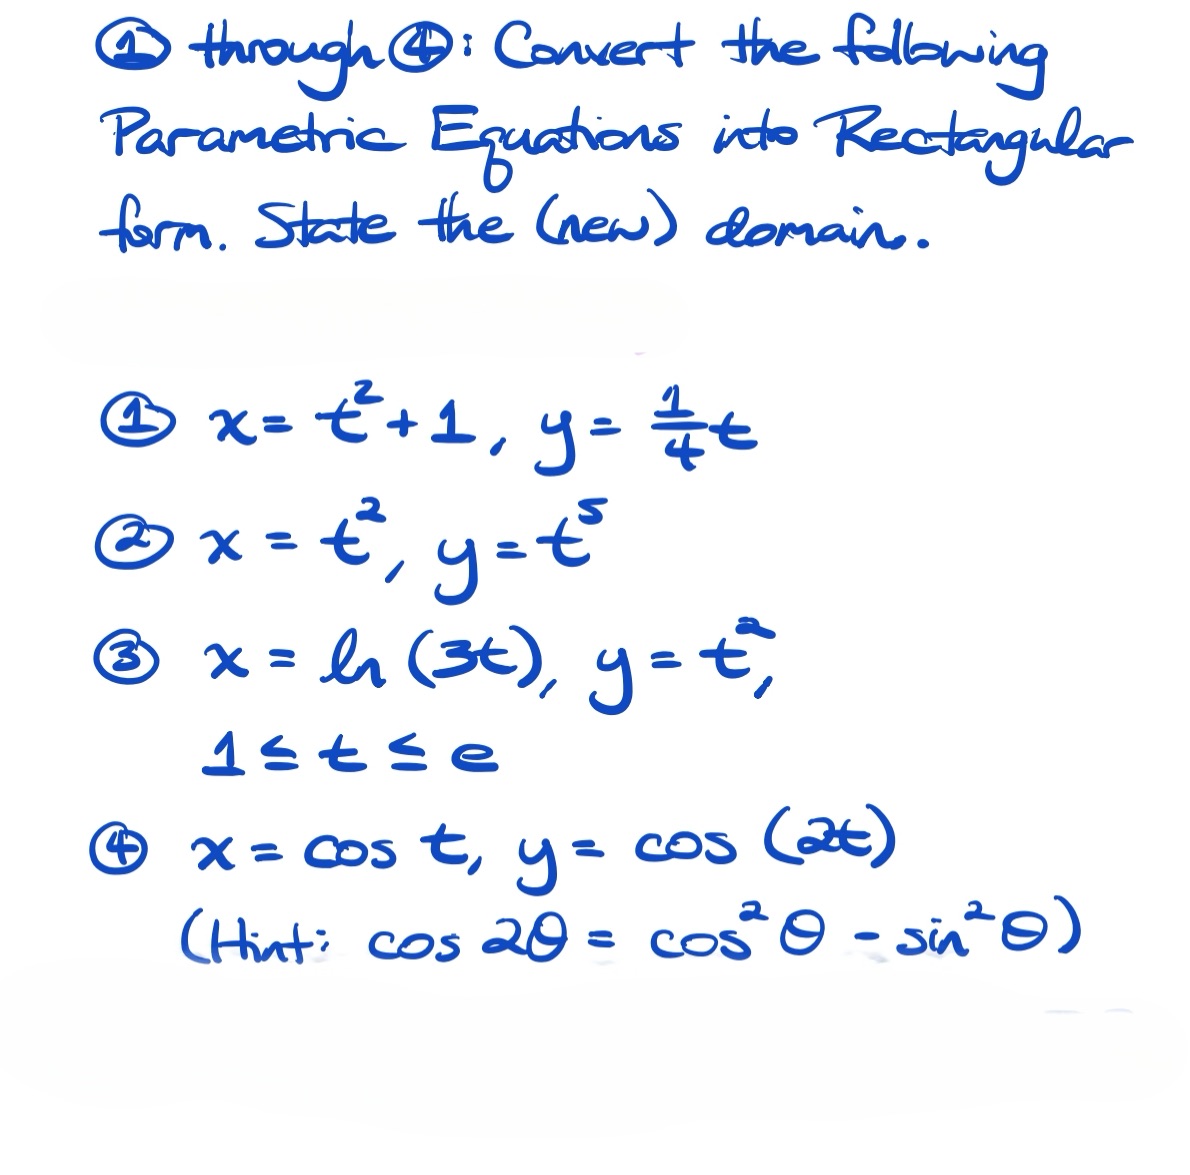 ① through ④: Convert the following
Parametric Equations into Rectangular
form. State the (new) domain.
① x = t² + 1, y = 1/4 t
② x = t², y = t⁵
③ x = ln (3t), y = t²,
1 ≤ t ≤ e
④ x = cos t, y = cos (2t)
(Hint: cos 2θ = cos² θ - sin² θ)